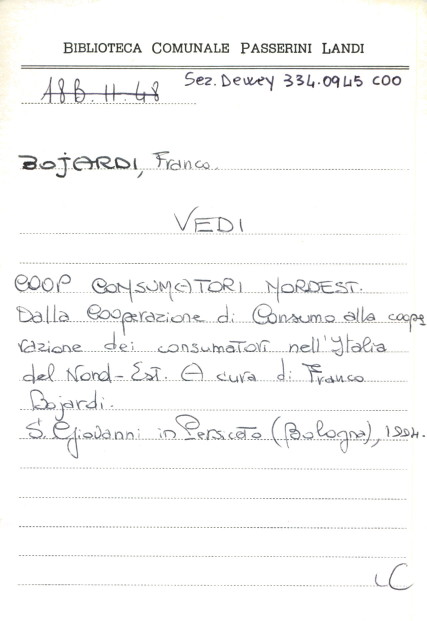 BIBLIOTECA COMUNALE PASSERINI LANDI
18B.H.48 Sez. Dewey 334.0945 COO
BOJARDI, Franco.
VEDI
COOP CONSUMATORI NORDEST.
Dalla Cooperazione di Consumo alla coope
razione dei consumatori nell'Italia
del Nord-Est. A cura di Franco
Bojardi.
S. Giovanni in Persiceto (Bologna), 1994.
LC